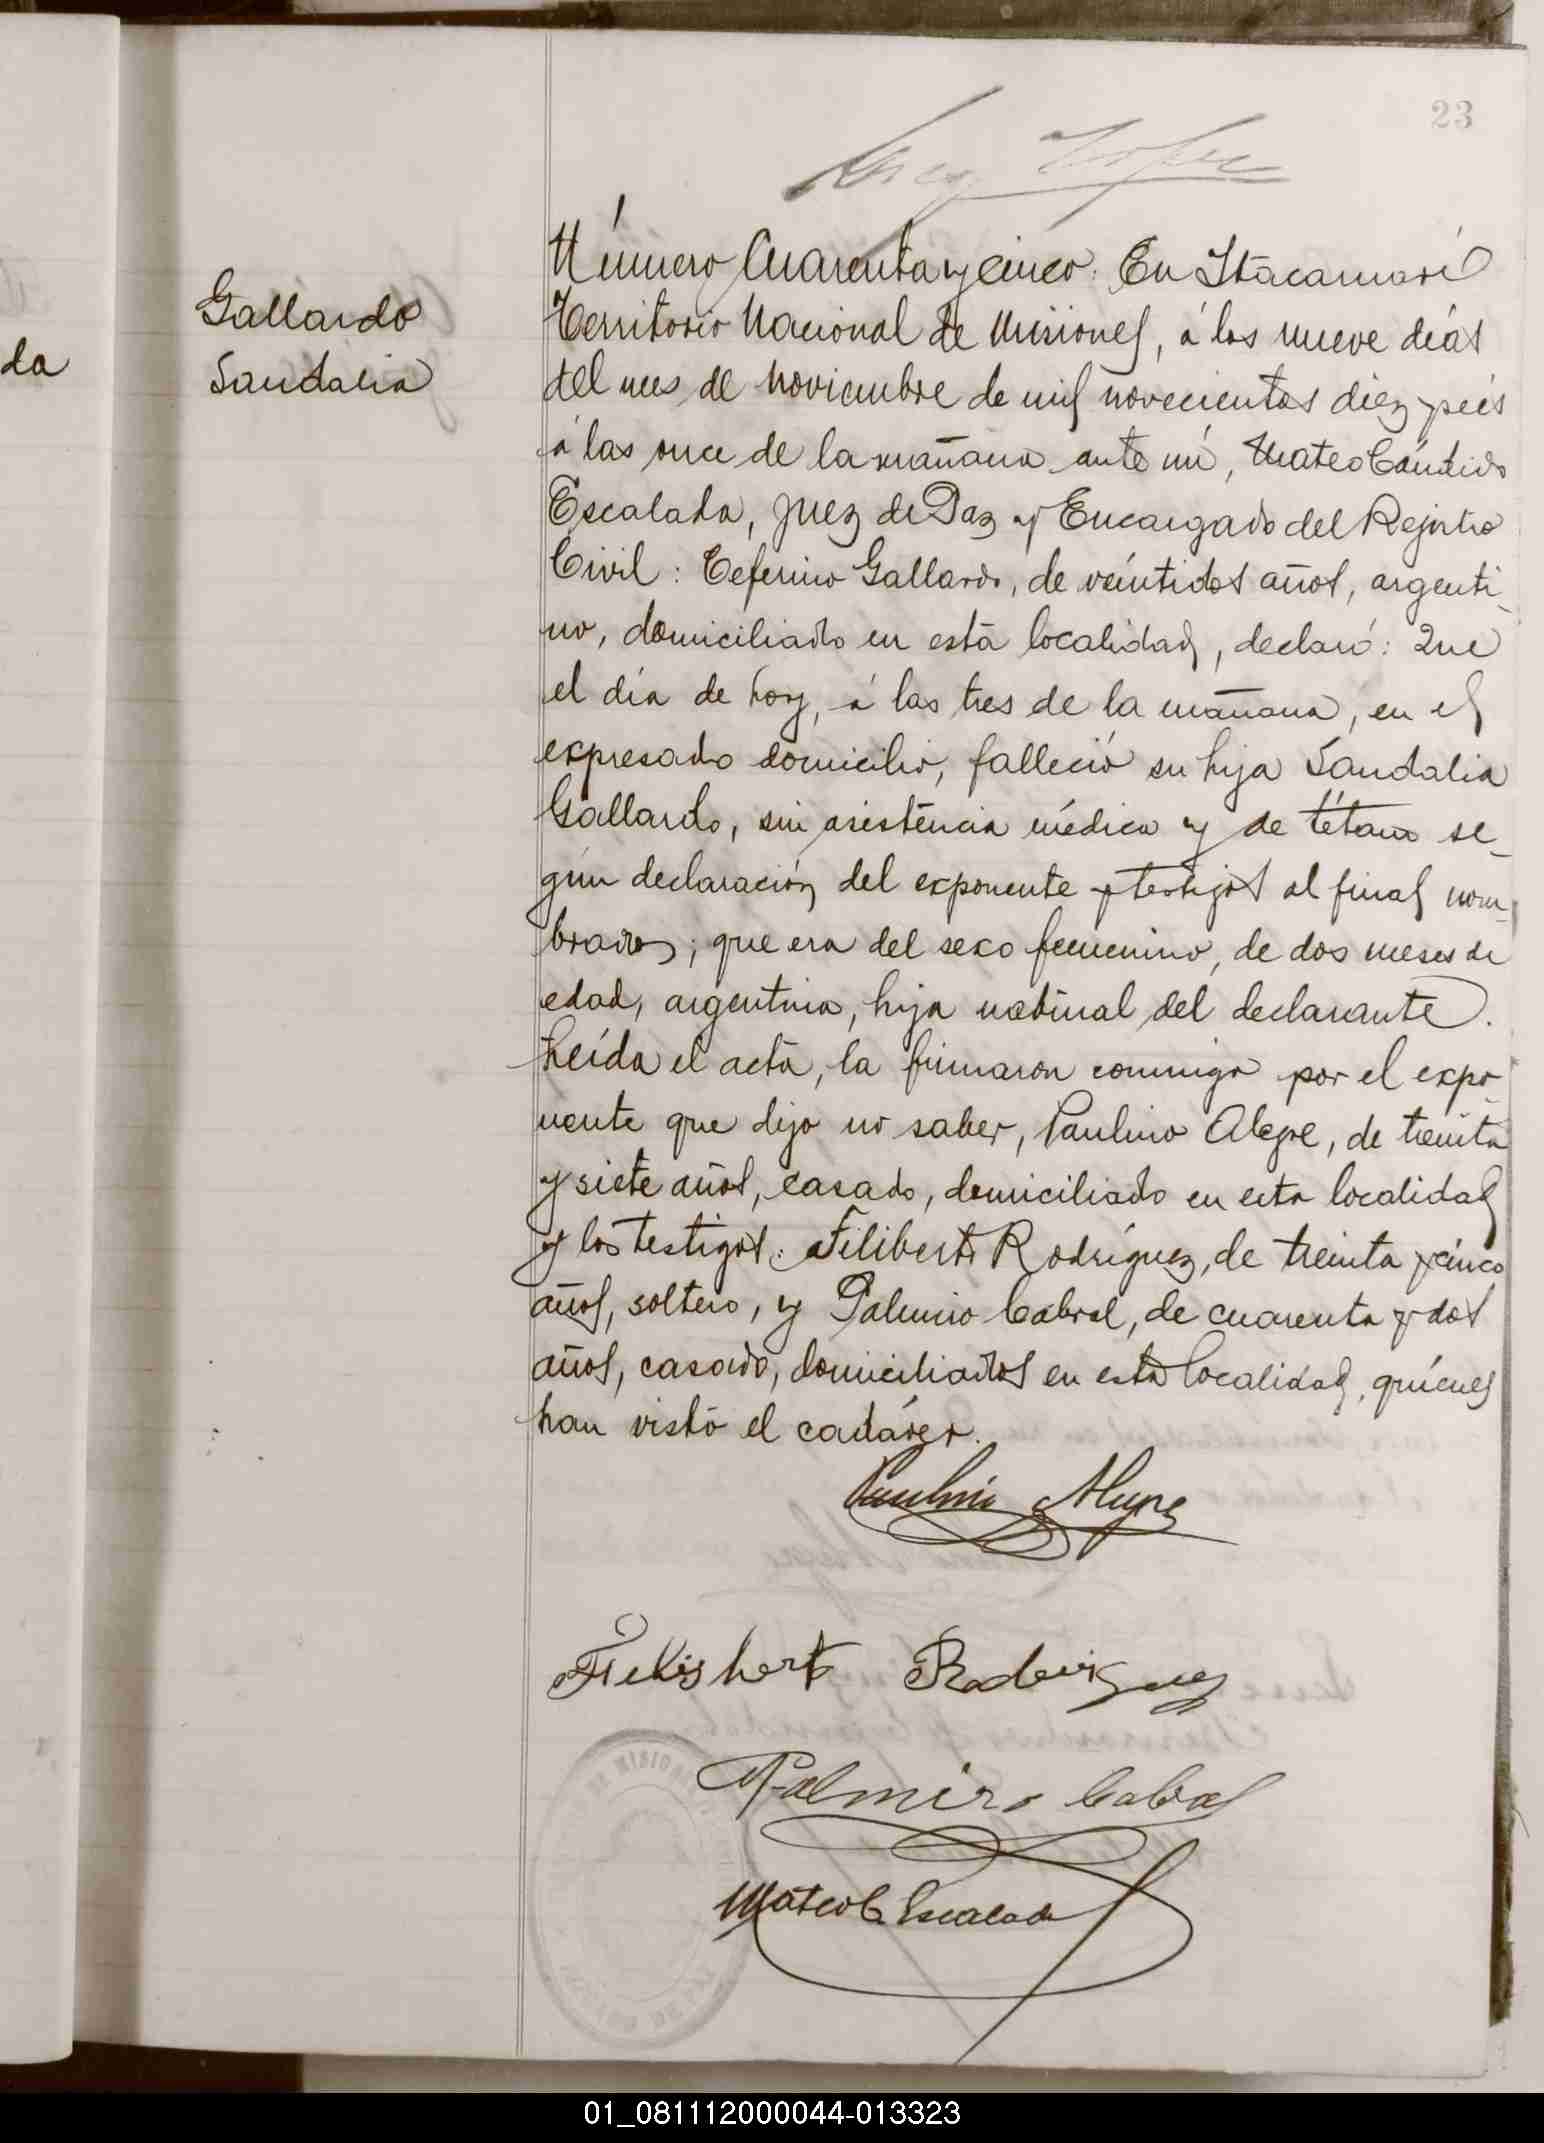 23
Gallardo
Sandalia
da
Número Cuarenta y cinco: En Itacaruaré
Territorio Nacional de Misiones, á los nueve días
del mes de Noviembre de mil novecientos diez y seis
á las once de la mañana ante mí, Mateo Cándido
Escalada, Juez de Paz y Encargado del Rejistro
Civil: Ceferino Gallardo, de veintidos años, argenti-
no, domiciliado en esta localidad, declaró: Que
el día de hoy, á las tres de la mañana, en el
expresado domicilio, falleció su hija Sandalia
Gallardo, sin asistencia médica y de tétano se-
gún declaración del exponente y testigos al final nom-
brados; que era del sexo femenino, de dos meses de
edad, argentina, hija natural del declarante.
Leída el acta, la firmaron conmigo por el expo-
nente que dijo no saber, Paulino Alegre, de treinta
y siete años, casado, domiciliado en esta localidad
y los testigos: Filiberto Rodríguez, de treinta y cinco
años, soltero, y Palmiro Cabral, de cuarenta y dos
años, casado, domiciliados en esta localidad, quiénes
han visto el cadáver.
Paulino Alegre
Rodriguez
Palmiro Cabral
Mateo C. Escalada
01_081112000044-013323